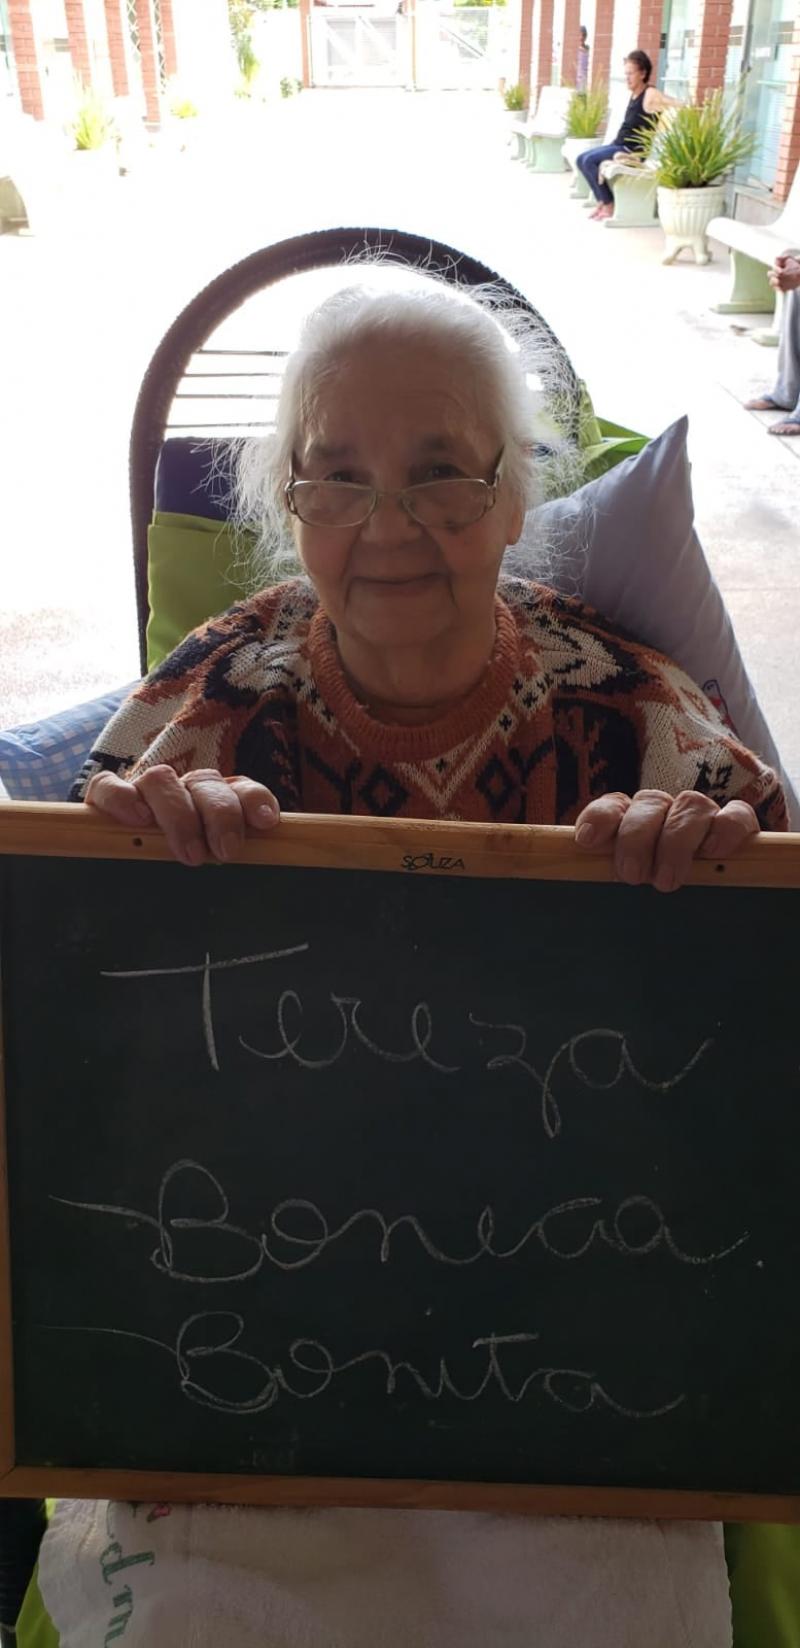 SOUZA
Tereza
Boneca.
Bonita